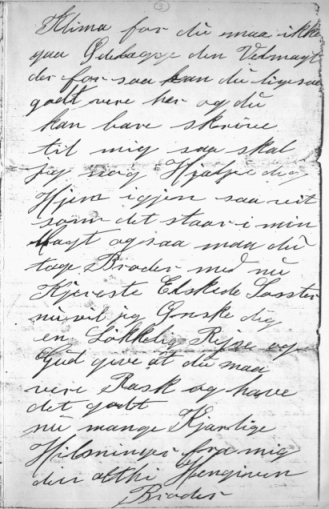 Klima for du maa ikke
gaa Ødelægge den Velmagt
der for saa kan du ligesaa
godt vere her og du
kan bare skrive
til mig saa skal
jeg nog Hjælpe dig
Hjem igjen saa vit
som det staar i min
Magt og saa maa du
tage Broder med nu
Kjereste Elskede Søster
nu vil jeg Ønske dig
en Løkkelig Rejse og
Gud give at du maa
vere Rask og have
det godt
nu mange Kjærlige
Hilsninger fra mig
din altki Hengiven
Broder